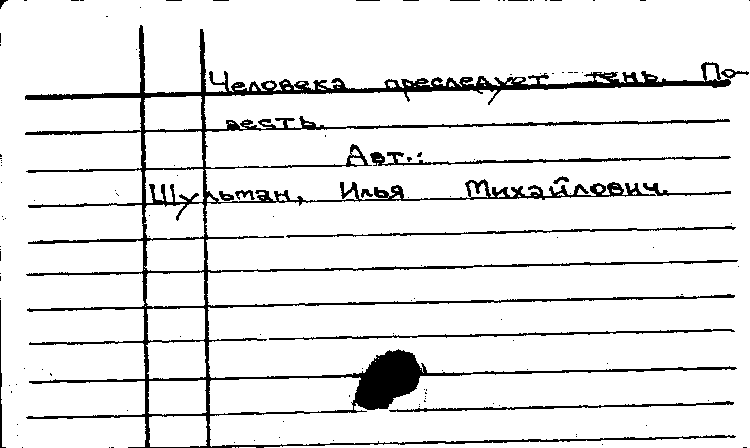 Человека преследует тень. По-
весть.
Авт.:
Шульман, Илья Михайлович.